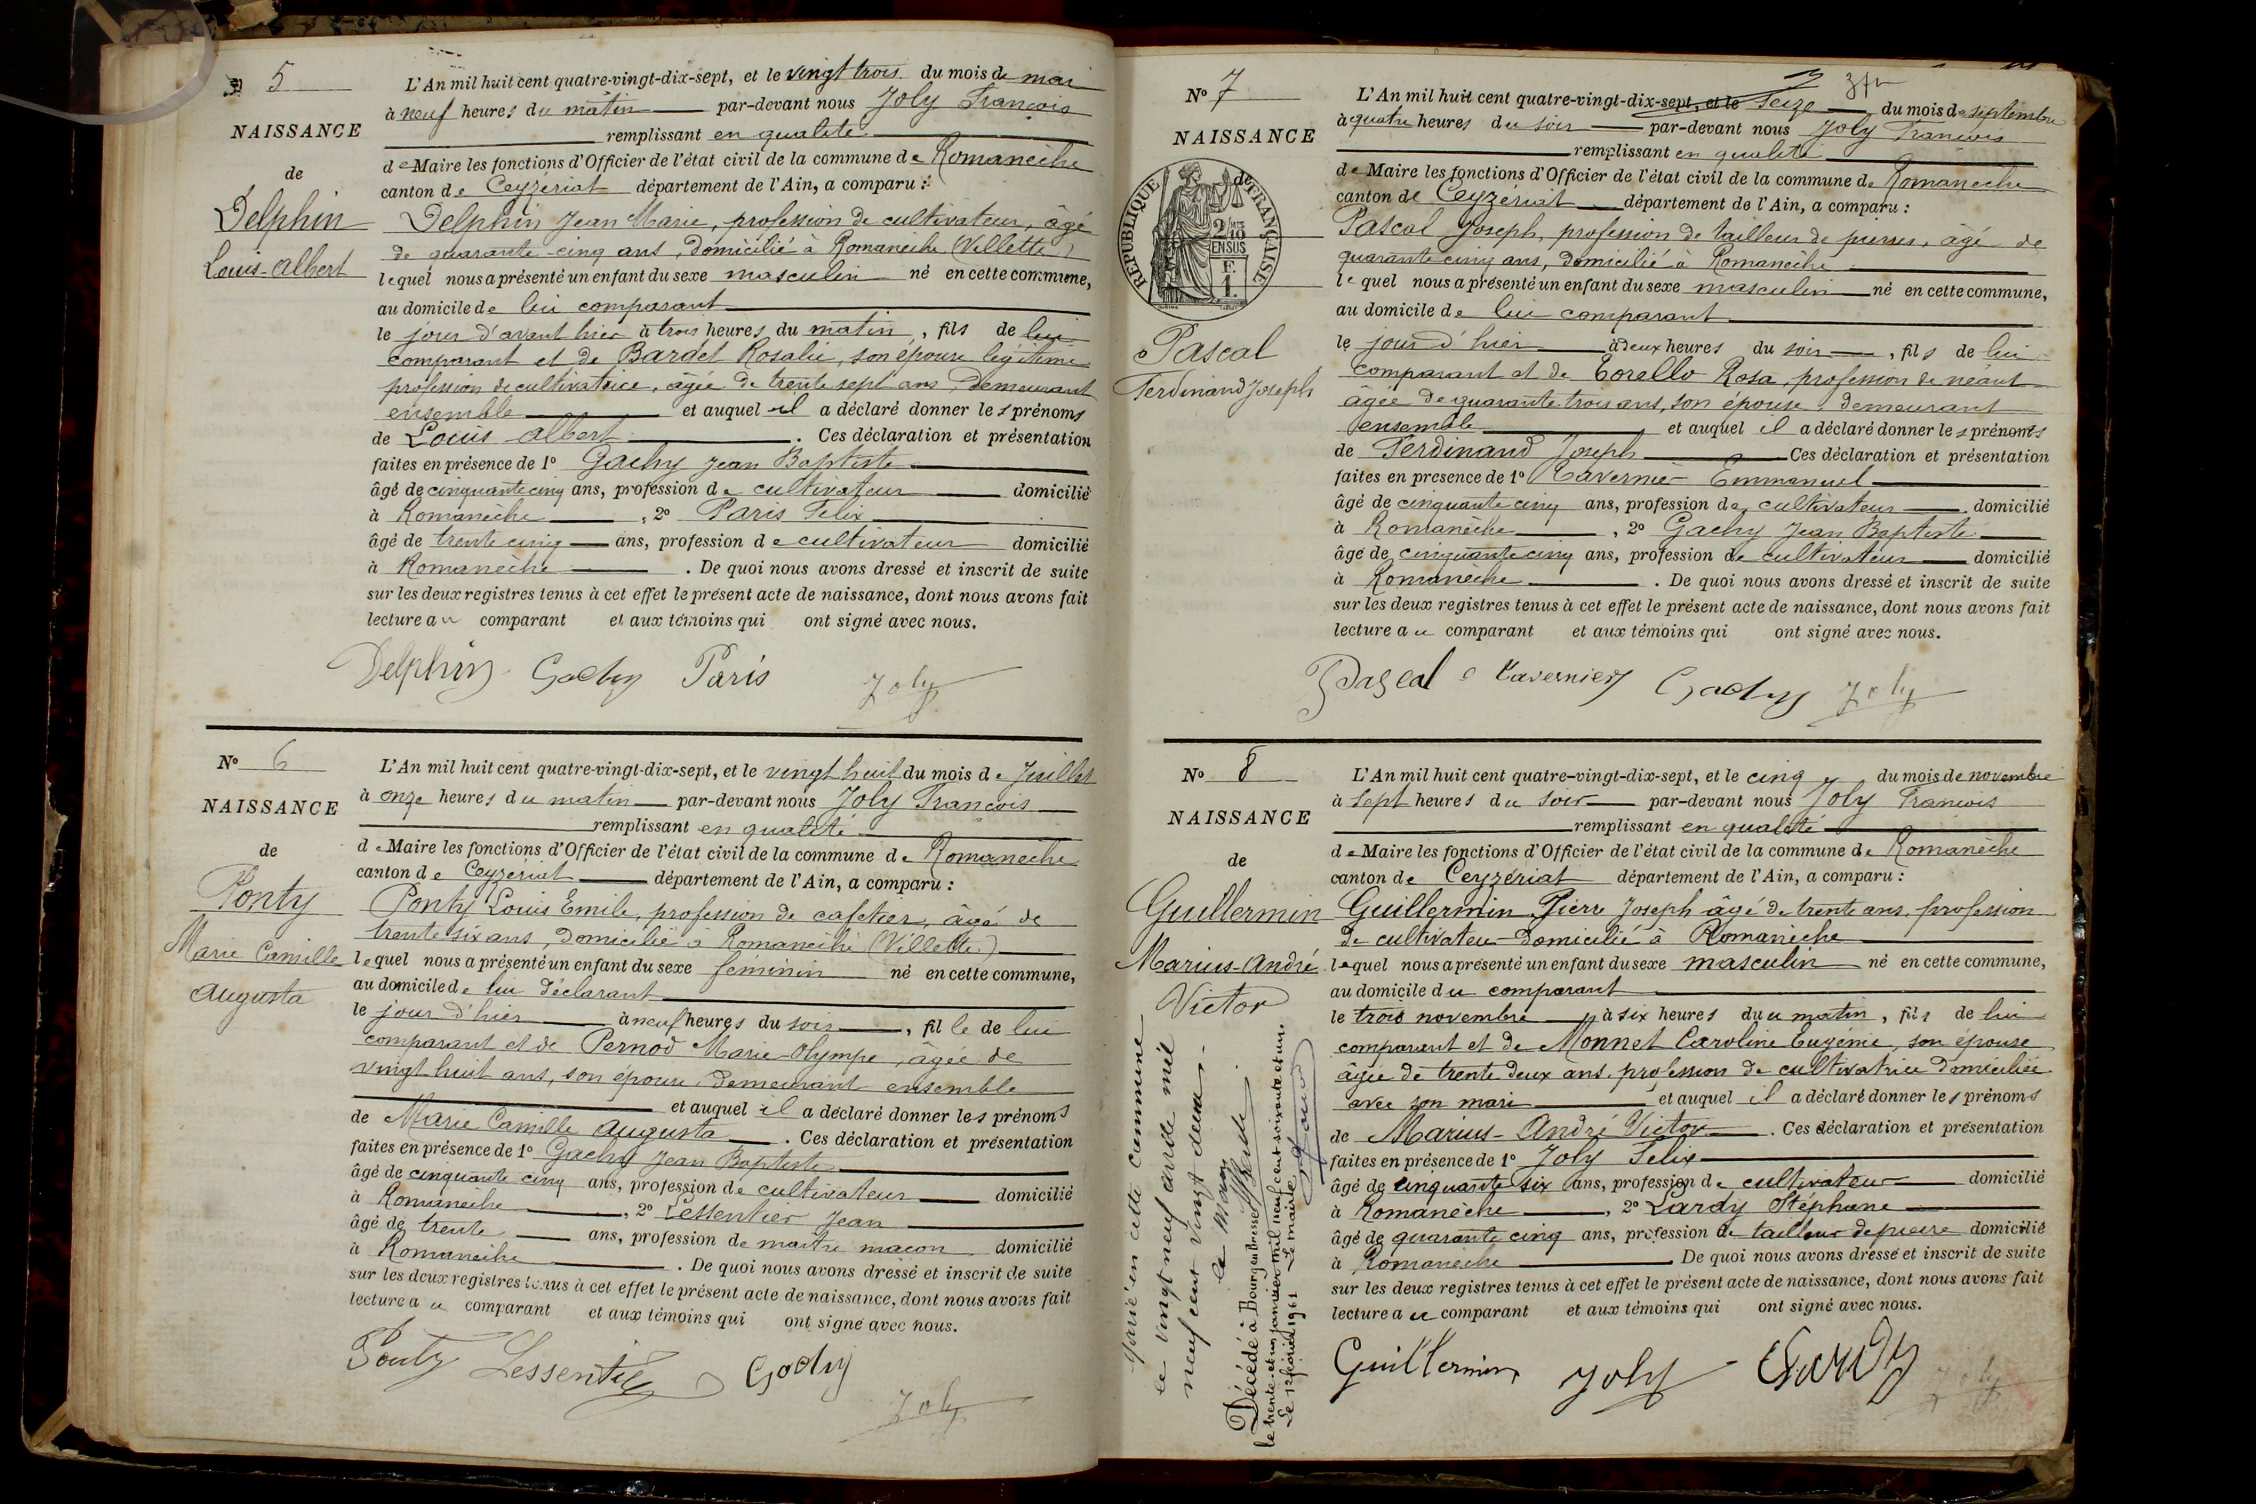 5
NAISSANCE
de
Delphin
Louis-Albert
L'An mil huit cent quatre-vingt-dix-sept, et le vingt trois du mois de mai
à neuf heures du matin par-devant nous Joly François
remplissant en qualité
de Maire les fonctions d'Officier de l'état civil de la commune de Romanèche
canton de Ceyzériat département de l'Ain, a comparu :
Delphin Jean Marie, profession de cultivateur, âgé
de quarante-cinq ans, domicilié à Romanèche (Villette)
lequel nous a présenté un enfant du sexe masculin né en cette commune,
au domicile de lui comparant
le jour d'avant hier à trois heures du matin, fils de lui
comparant et de Bardet Rosalie, son épouse légitime
profession de cultivatrice, âgée de trente sept ans, demeurant
ensemble et auquel il a déclaré donner les prénoms
de Louis Albert. Ces déclaration et présentation
faites en présence de 1° Gachy Jean Baptiste
âgé de cinquante cinq ans, profession de cultivateur domicilié
à Romanèche, 2° Paris Felix
âgé de trente cinq ans, profession de cultivateur domicilié
à Romanèche. De quoi nous avons dressé et inscrit de suite
sur les deux registres tenus à cet effet le présent acte de naissance, dont nous avons fait
lecture au comparant et aux témoins qui ont signé avec nous.
Delphin Gachy Paris Joly
N° 6
NAISSANCE
de
Ponty
Marie Camille
Augusta
L'An mil huit cent quatre-vingt-dix-sept, et le vingt huit du mois de Juillet
à onze heures du matin par-devant nous Joly François
remplissant en qualité
de Maire les fonctions d'Officier de l'état civil de la commune de Romanèche
canton de Ceyzériat département de l'Ain, a comparu :
Ponty Louis Emile, profession de cafetier, âgé de
trente six ans, domicilié à Romanèche (Villette)
lequel nous a présenté un enfant du sexe féminin né en cette commune,
au domicile de lui déclarant
le jour d'hier à neuf heures du soir, fille de lui
comparant et de Pernod Marie-Olympe, âgée de
vingt huit ans, son épouse, demeurant ensemble
et auquel il a déclaré donner les prénoms
de Marie Camille Augusta. Ces déclaration et présentation
faites en présence de 1° Gachy Jean Baptiste
âgé de cinquante cinq ans, profession de cultivateur domicilié
à Romanèche, 2° Lessentier Jean
âgé de trente ans, profession de maitre maçon domicilié
à Romanèche. De quoi nous avons dressé et inscrit de suite
sur les deux registres tenus à cet effet le présent acte de naissance, dont nous avons fait
lecture au comparant et aux témoins qui ont signé avec nous.
Ponty Lessentier Gachy
Joly
N° 7
NAISSANCE
de
REPUBLIQUE FRANÇAISE
2/10 EN SUS
F. 1.
Pascal
Ferdinand Joseph
L'An mil huit cent quatre-vingt-dix-sept, et le seize du mois de septembre
à quatre heures du soir par-devant nous Joly François
remplissant en qualité
de Maire les fonctions d'Officier de l'état civil de la commune de Romanèche
canton de Ceyzériat département de l'Ain, a comparu :
Pascal Joseph, profession de tailleur de pierres, âgé de
quarante cinq ans, domicilié à Romanèche
lequel nous a présenté un enfant du sexe masculin né en cette commune,
au domicile de lui comparant
le jour d'hier à deux heures du soir, fils de lui
comparant et de Torello Rosa, profession de néant
âgée de quarante trois ans, son épouse, demeurant
ensemble et auquel il a déclaré donner les prénoms
de Ferdinand Joseph Ces déclaration et présentation
faites en présence de 1° Tavernier Emmanuel
âgé de cinquante cinq ans, profession de cultivateur domicilié
à Romanèche, 2° Gachy Jean Baptiste
âgé de cinquante cinq ans, profession de cultivateur domicilié
à Romanèche. De quoi nous avons dressé et inscrit de suite
sur les deux registres tenus à cet effet le présent acte de naissance, dont nous avons fait
lecture au comparant et aux témoins qui ont signé avec nous.
Pascal Tavernier Gachy Joly
N° 8
NAISSANCE
de
Guillermin
Marius-André
Victor
Marié en cette commune
le vingt neuf avril mil
neuf cent vingt deux.
le Maire
Décédé à Bourg en Bresse
le trente et un janvier mil neuf cent soixante et un.
Le 12 février 1961 Le maire
L'An mil huit cent quatre-vingt-dix-sept, et le cinq du mois de novembre
à sept heures du soir par-devant nous Joly François
remplissant en qualité
de Maire les fonctions d'Officier de l'état civil de la commune de Romanèche
canton de Ceyzériat département de l'Ain, a comparu :
Guillermin Pierre Joseph âgé de trente ans, profession
de cultivateur domicilié à Romanèche
lequel nous a présenté un enfant du sexe masculin né en cette commune,
au domicile du comparant
le trois novembre à six heures du matin, fils de lui
comparant et de Monnet Caroline Eugénie, son épouse
âgée de trente deux ans, profession de cultivatrice domiciliée
avec son mari et auquel il a déclaré donner les prénoms
de Marius-André Victor. Ces déclaration et présentation
faites en présence de 1° Joly Felix
âgé de cinquante six ans, profession de cultivateur domicilié
à Romanèche, 2° Lardy Stéphane
âgé de quarante cinq ans, profession de tailleur de pierre domicilié
à Romanèche. De quoi nous avons dressé et inscrit de suite
sur les deux registres tenus à cet effet le présent acte de naissance, dont nous avons fait
lecture au comparant et aux témoins qui ont signé avec nous.
Guillermin Joly Lardy Joly